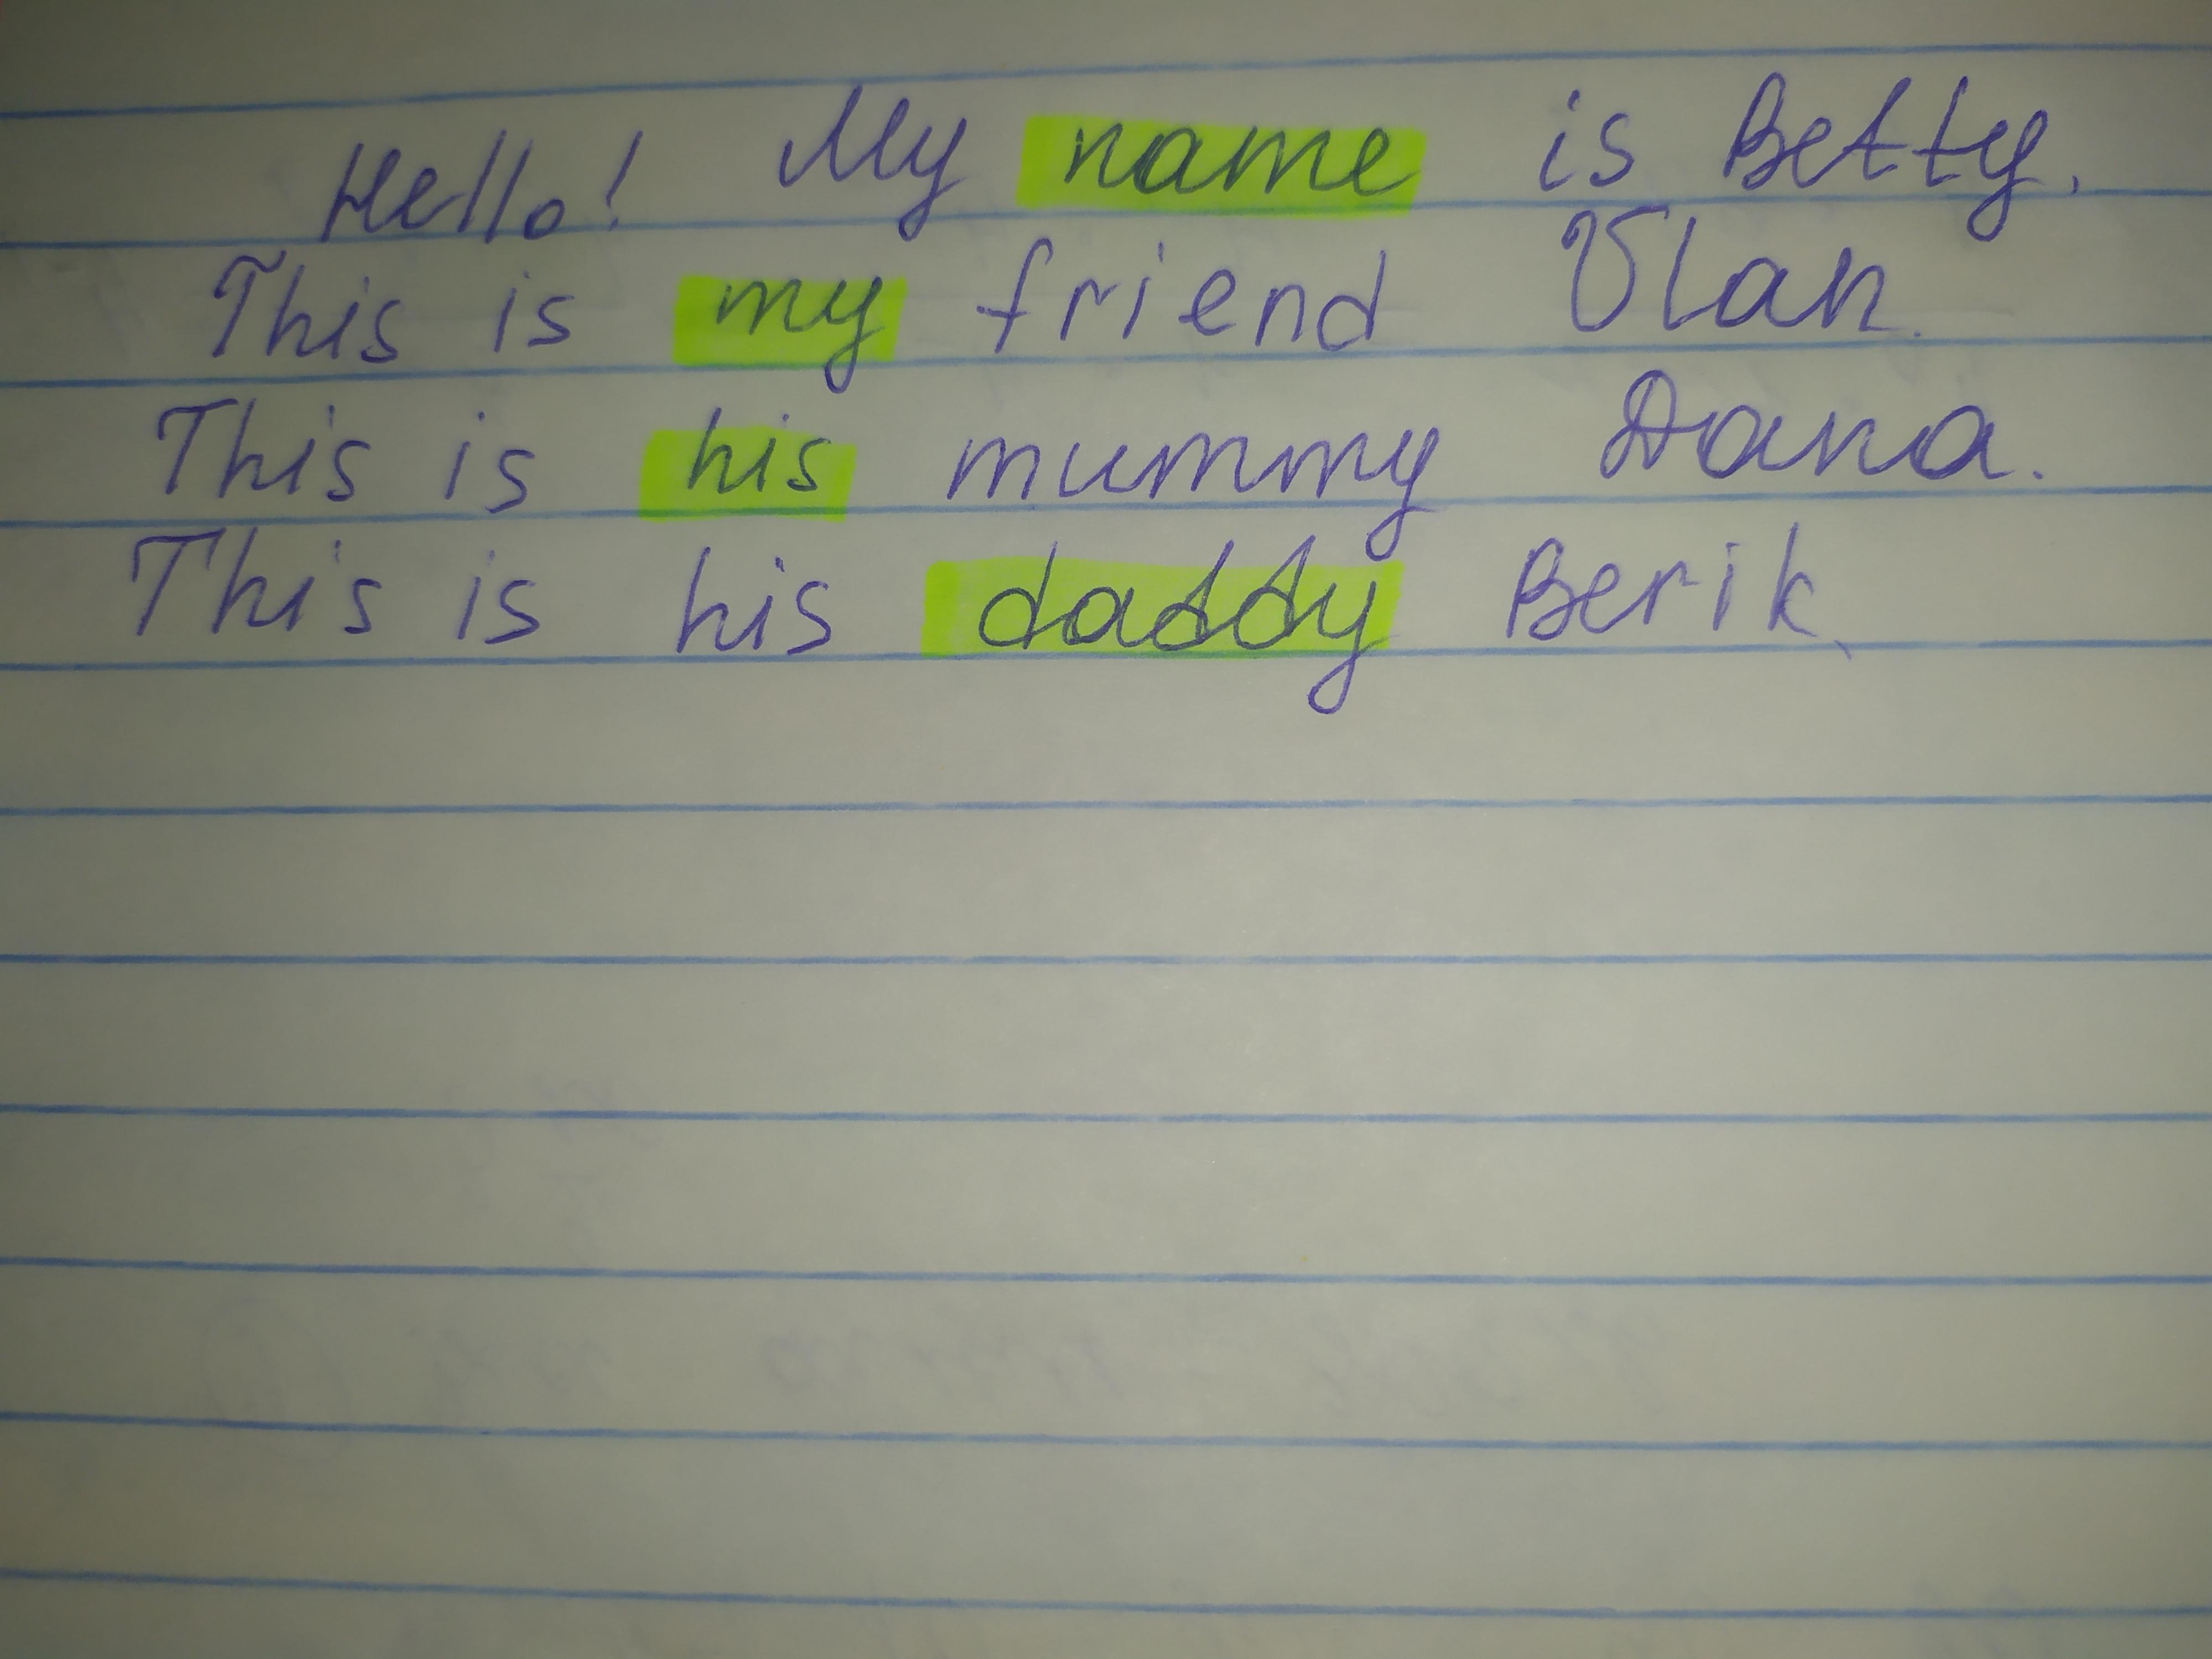 Hello! My name is Betty.
This is my friend Ulan.
This is his mummy Dana.
This is his daddy Berik.